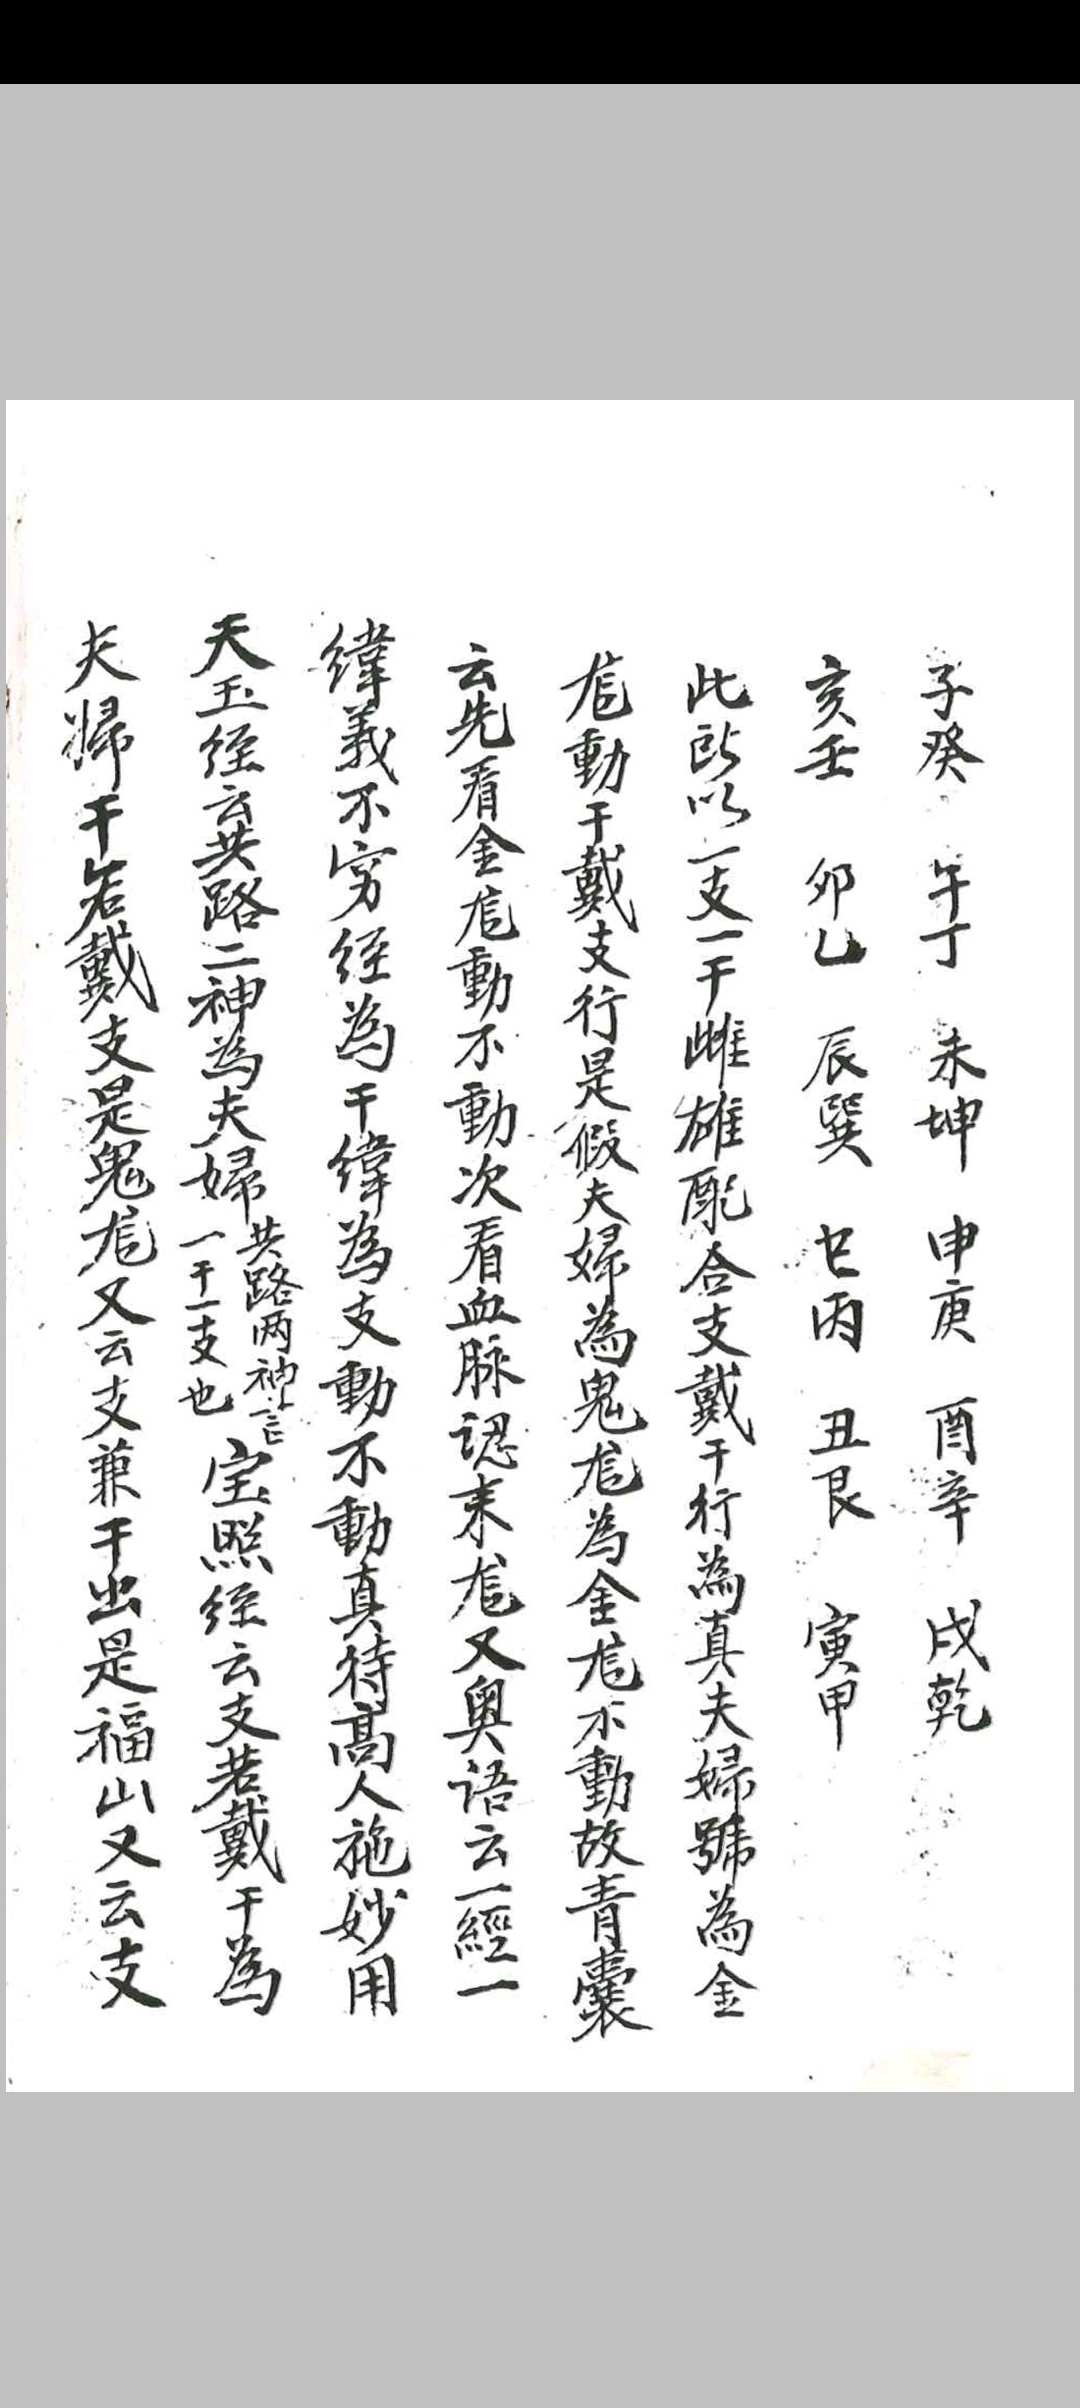 子癸　午丁　未坤　申庚　酉辛　戌乾
亥壬　卯乙　辰巽　巳丙　丑艮　寅甲
此所以一支一干雌雄配合支戴干行為真夫婦號為金
龙動干戴支行是假夫婦為鬼龙為金龙不動故青囊
云先看金龙動不動次看血脉認来龙又奥语云一經一
緯義不穷経為干緯為支動不動真待髙人施妙用
天玉経云共路二神為夫婦
共路两神言
一干一支也
宝照経云支若戴干為
夫婦干若戴支是鬼龙又云支兼干出是福山又云支